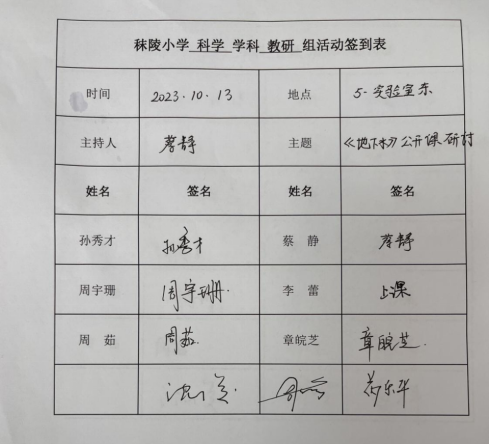 秣陵小学 科学 学科 教研 组活动签到表
时间 2023.10.13 地点 5-实验室东
主持人 蔡静 主题 《地下水》公开课研讨
姓名 签名 姓名 签名
孙秀才 孙秀才 蔡 静 蔡静
周宇珊 周宇珊. 李 蕾 上课
周 茹 周茹. 章皖芝 章皖芝.